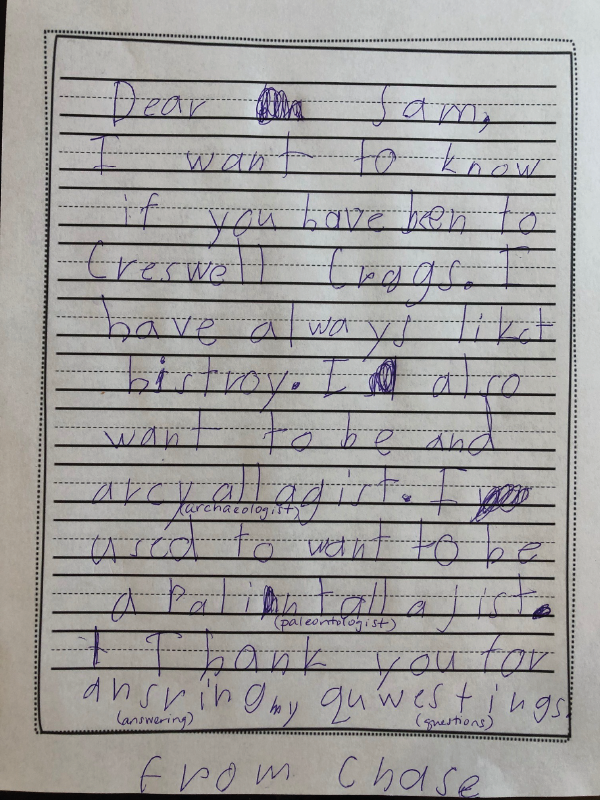 Dear Sam,
I want to know
if you have been to
Creswell Crags. I
have always likct
histroy. I also
want to be and
arcyallagist. I
(archaeologist)
used to want to be
a Palintallajist.
(paleontologist)
I Thank you for
ansring my quwestings.
(answering) (questions)
From Chase